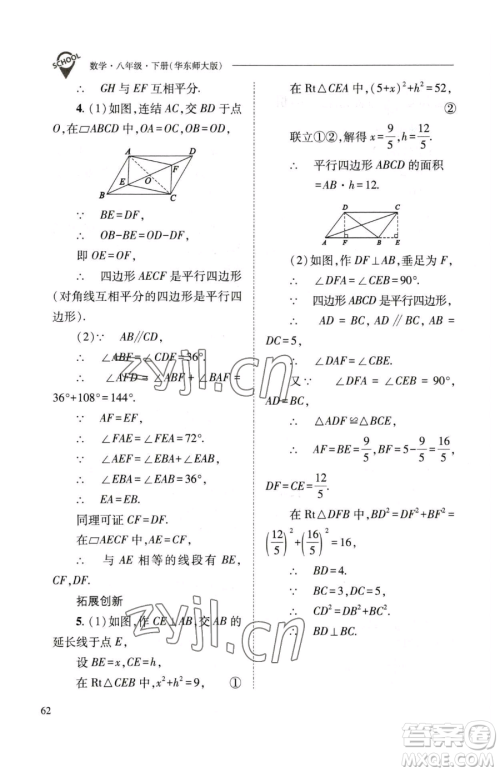 SCHOOL
数学·八年级·下册(华东师大版)
∴ GH与EF互相平分.
4. (1)如图,连结AC,交BD于点
O,在▱ABCD中,OA=OC,OB=OD,
A D
F
E O
B C
∵ BE=DF,
∴ OB-BE=OD-DF,
即OE=OF,
∴ 四边形AECF是平行四边形
(对角线互相平分的四边形是平行四
边形).
(2)∵ AB∥CD,
∴ ∠ABF=∠CDE=36°,
∴ ∠AFD=∠ABF+∠BAF=
36°+108°=144°,
∵ AF=EF,
∴ ∠FAE=∠FEA=72°,
∴ ∠EBA=∠EAB=36°,
∴ EA=EB.
同理可证CF=DF.
在▱AECF中,AE=CF,
∴ 与AE相等的线段有BE,
CF,DF.
拓展创新
5. (1)如图,作CE⊥AB,交AB的
延长线于点E,
设BE=x,CE=h,
在Rt△CEB中,x²+h²=9, ①
在Rt△CEA中,(5+x)²+h²=52,
②
联立①②,解得x=9/5,h=12/5.
∴ 平行四边形ABCD的面积
=AB·h=12.
D C
A F B E
(2)如图,作DF⊥AB,垂足为F,
∴ ∠DFA=∠CEB=90°.
∵ 四边形ABCD是平行四边形,
∴ AD=BC,AD∥BC,AB=
DC=5,
∴ ∠DAF=∠CBE.
又∵ ∠DFA=∠CEB=90°,
AD=BC,
∴ △ADF≌△BCE,
∴ AF=BE=9/5,BF=5-9/5=16/5,
DF=CE=12/5.
在Rt△DFB中,BD²=DF²+BF²=
(12/5)²+(16/5)²=16,
∴ BD=4.
∵ BC=3,DC=5,
∴ CD²=DB²+BC²,
∴ BD⊥BC.
62
zyjl.cn
zyjl.cn
作业精灵